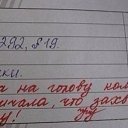 292, §19.
ски.
а на голову ком
ничала, что захо
у!